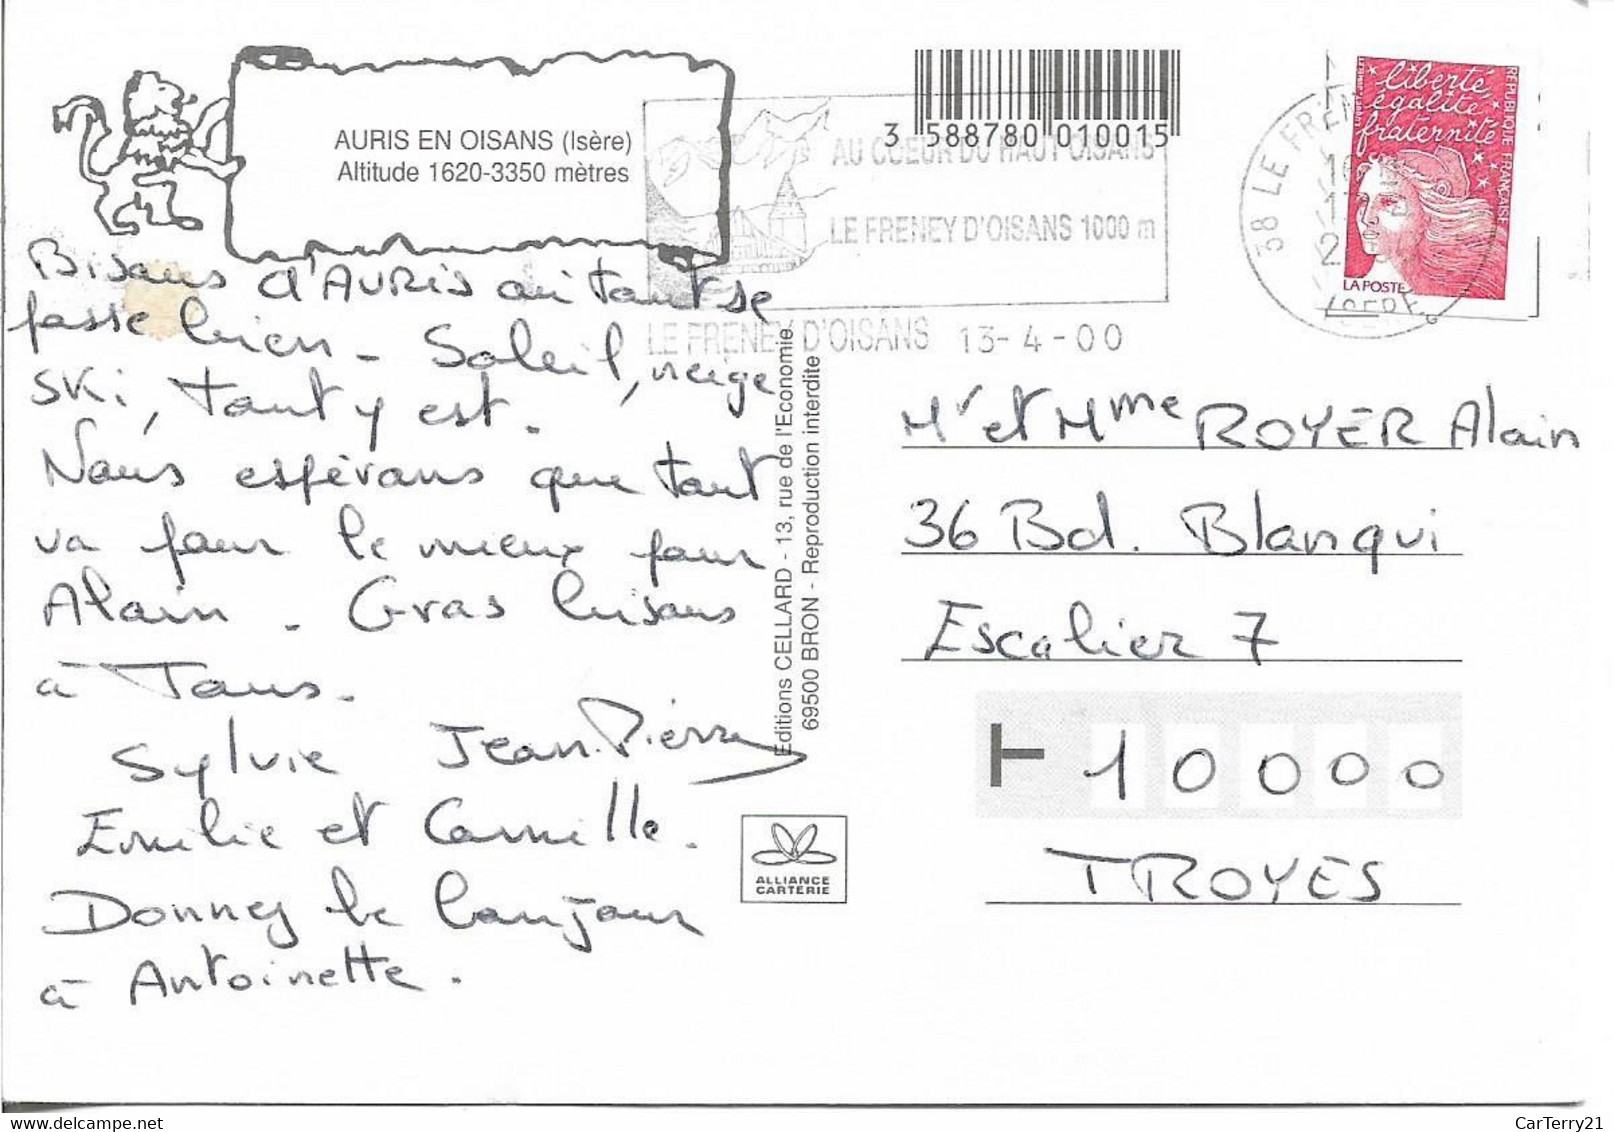 AURIS EN OISANS (Isère)
Altitude 1620-3350 mètres
3 588780 010015
AU COEUR DU HAUT OISANS
LE FRENEY D'OISANS 1000 m
LE FRENEY D'OISANS 13-4-00
38 LE FREN
ISERE
liberté,
égalité,
fraternité
REPUBLIQUE FRANÇAISE
LA POSTE
Bisous d'AURIS où tout se
passe bien - Soleil, neige
ski, tout y est.
Nous espérons que tout
va pour le mieux pour
Alain - Gros bisous
à Tous -
Sylvie Jean-Pierre
Emilie et Camille.
Donnez le bonjour
à Antoinette.
Editions CELLARD - 13, rue de l'Economie
69500 BRON - Reproduction interdite
ALLIANCE
CARTERIE
Mr et Mme ROYER Alain
36 Bd. Blanqui
Escalier 7
10000
TROYES
CarTerry21